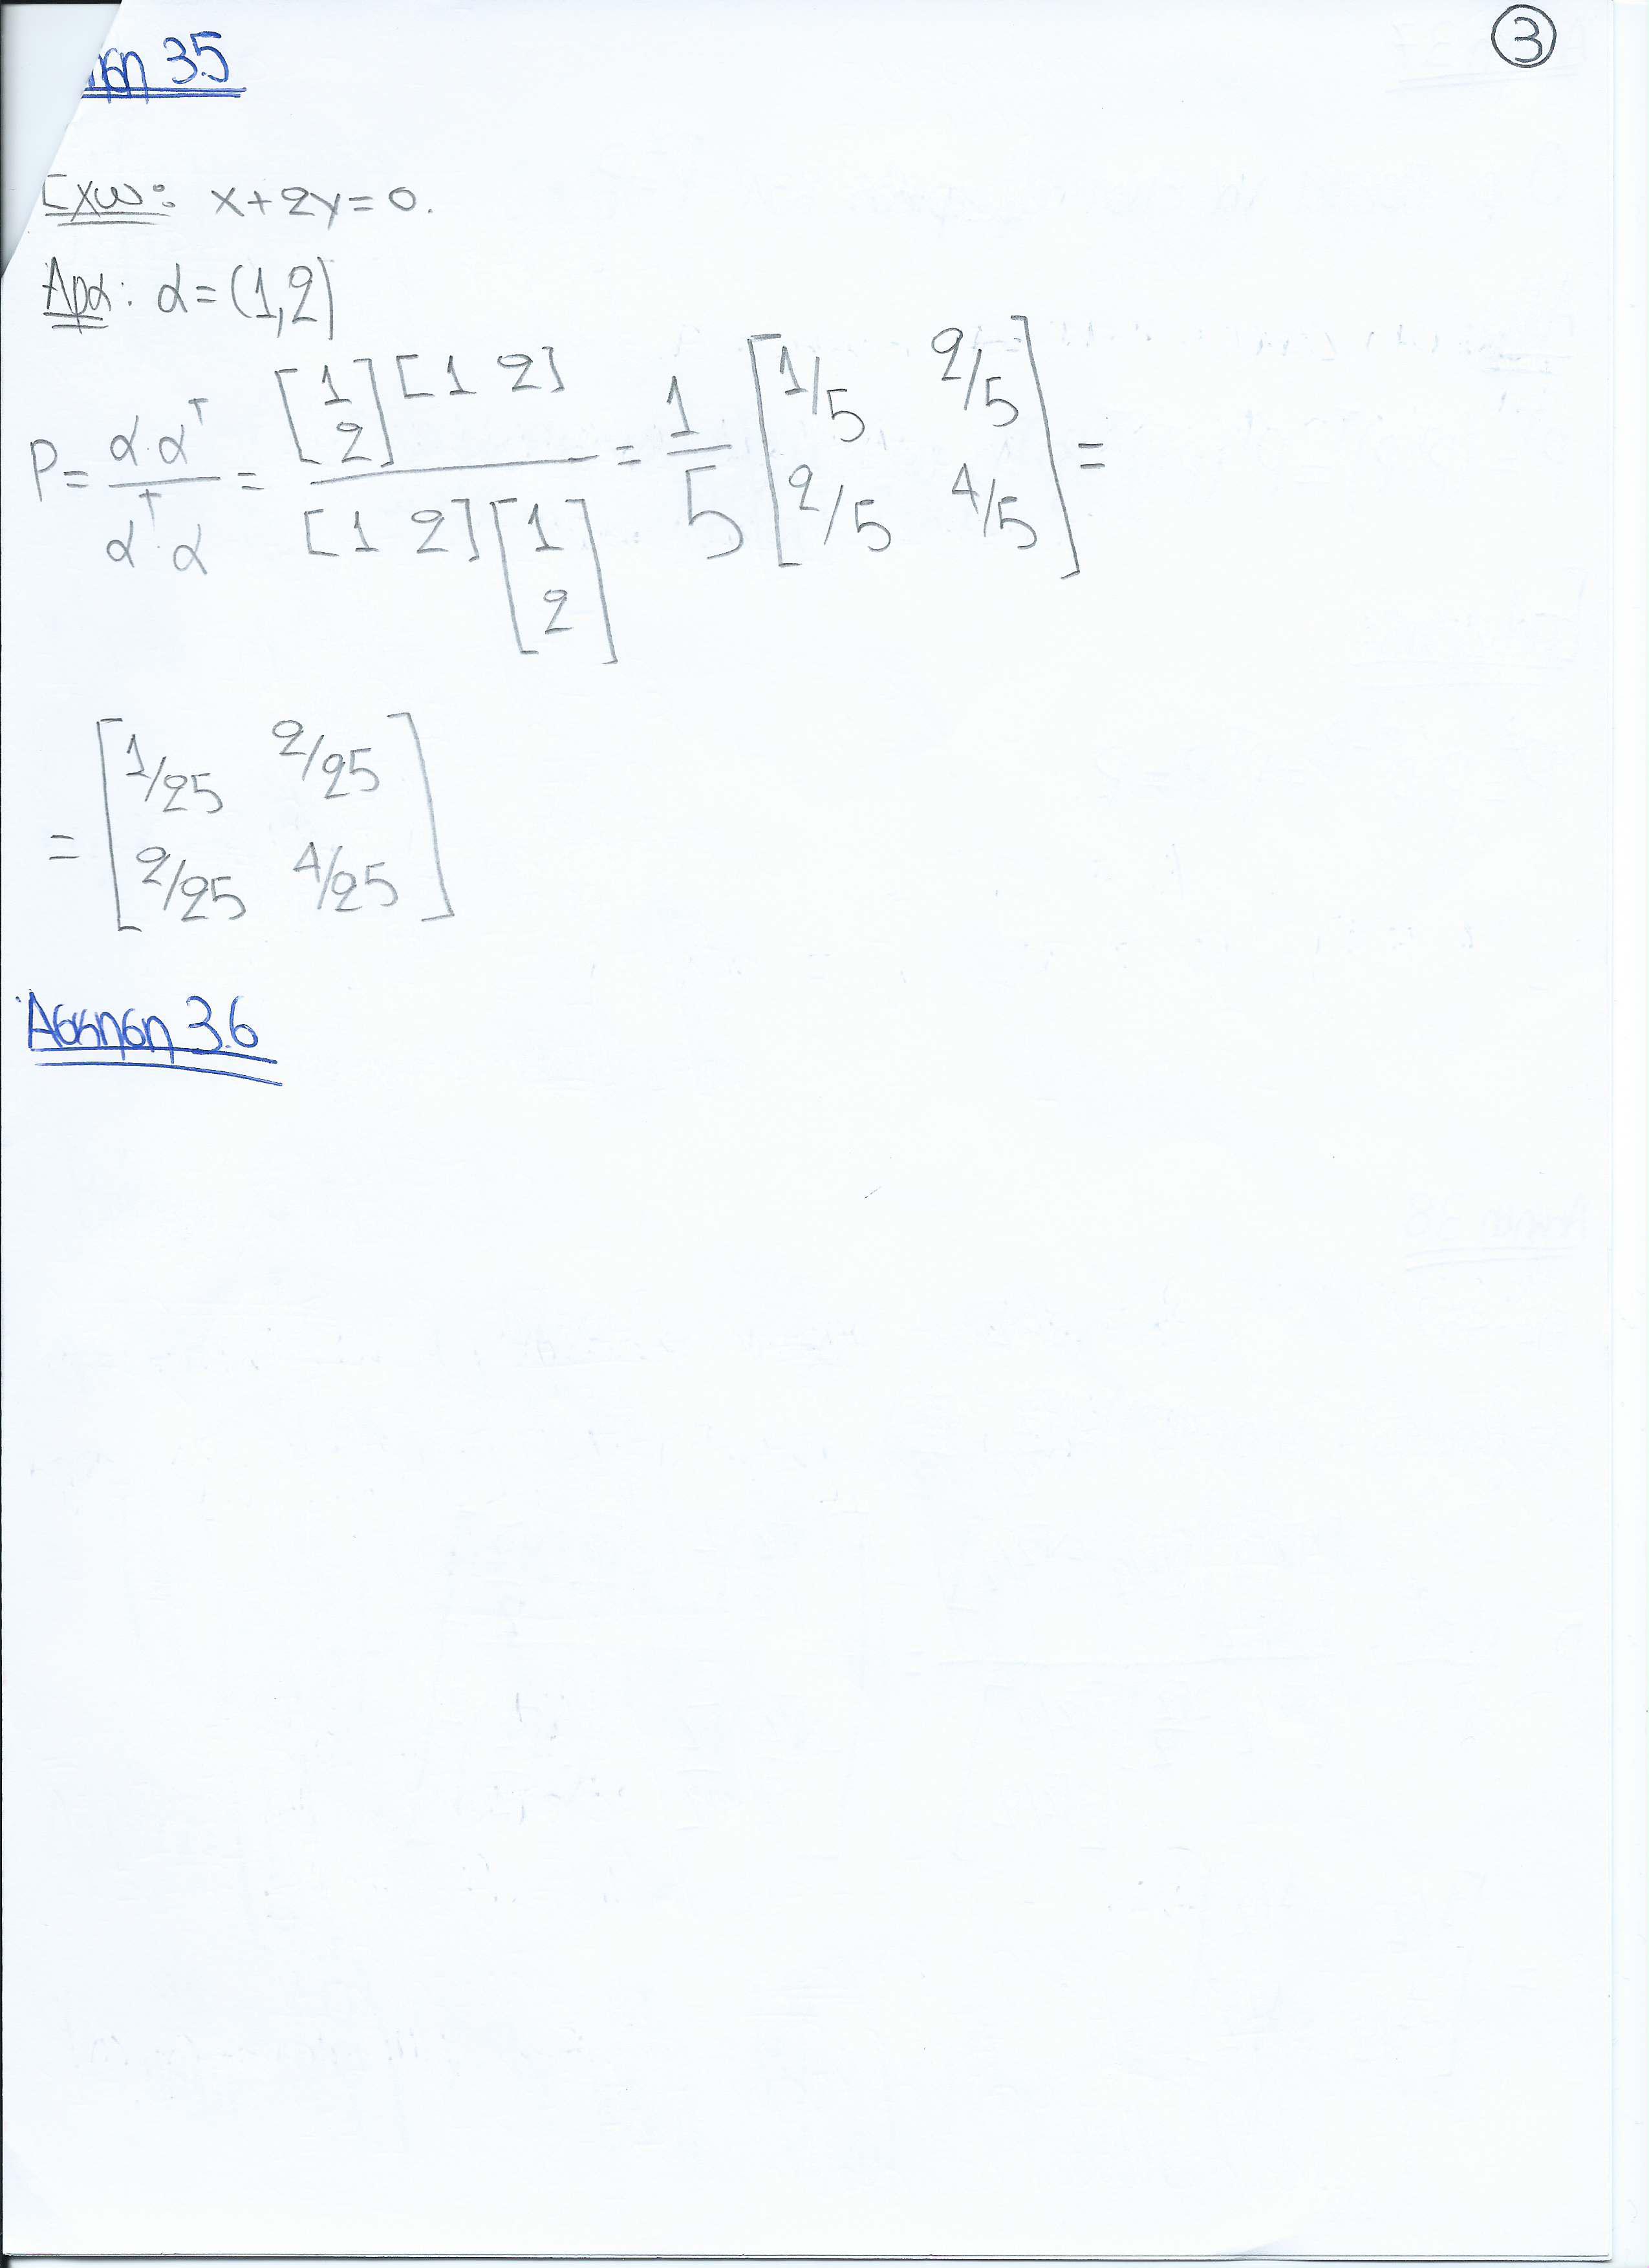 ③
ηση 3.5
Έχω: x+2y=0.
Άρα: α=(1,2)
P= α·αᵀ / αᵀ·α = [1 2]ᵀ [1 2] / [1 2] [1 2]ᵀ = 1/5 [1/5 2/5 ; 2/5 4/5] =
= [1/25 2/25 ; 2/25 4/25]
Άσκηση 3.6